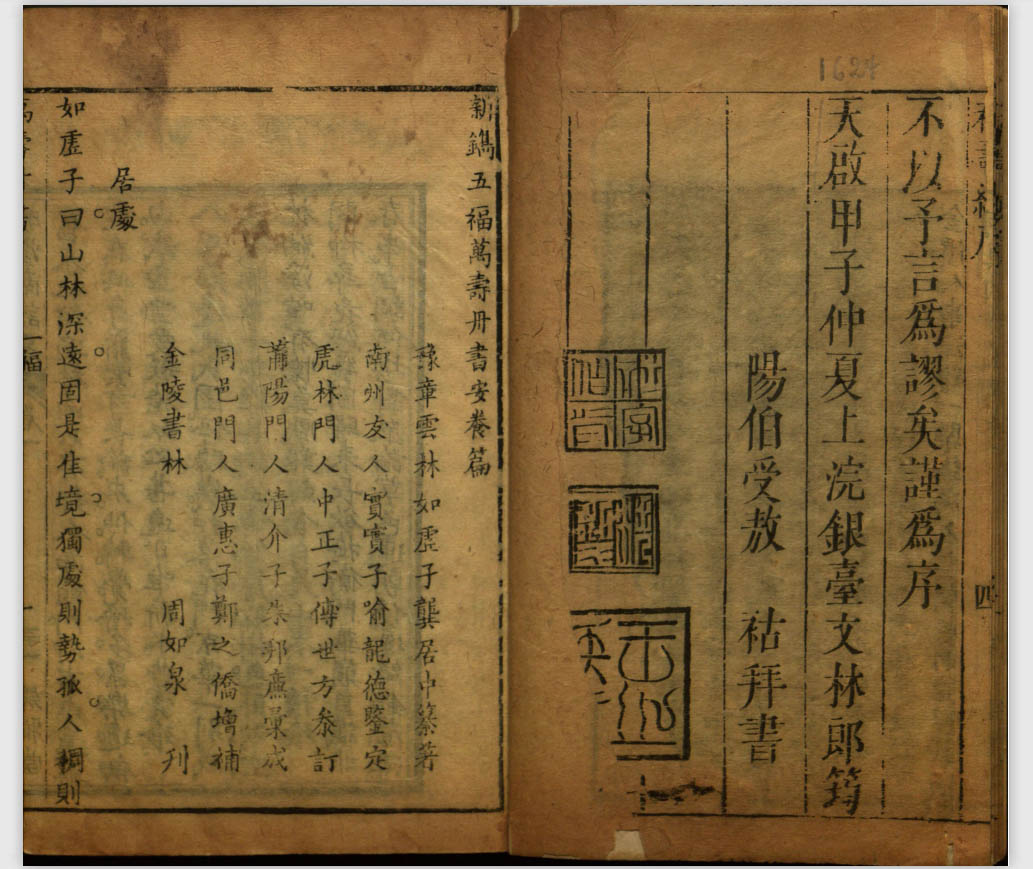 1624
四
不以予言爲謬矣謹爲序
天啟甲子仲夏上浣銀臺文林郎筠
陽伯受敖 祜拜書
新鐫五福萬壽丹書安養篇
豫章雲林如虛子龔居中纂著
南州友人實實子喻龍德鑒定
虎林門人中正子傅世方叅訂
莆陽門人清介子朱邦廉彙成
同邑門人廣惠子鄭之僑增補
金陵書林 周如泉 刊
居處
如虛子曰山林深遠固是佳境獨處則勢孤人稠則